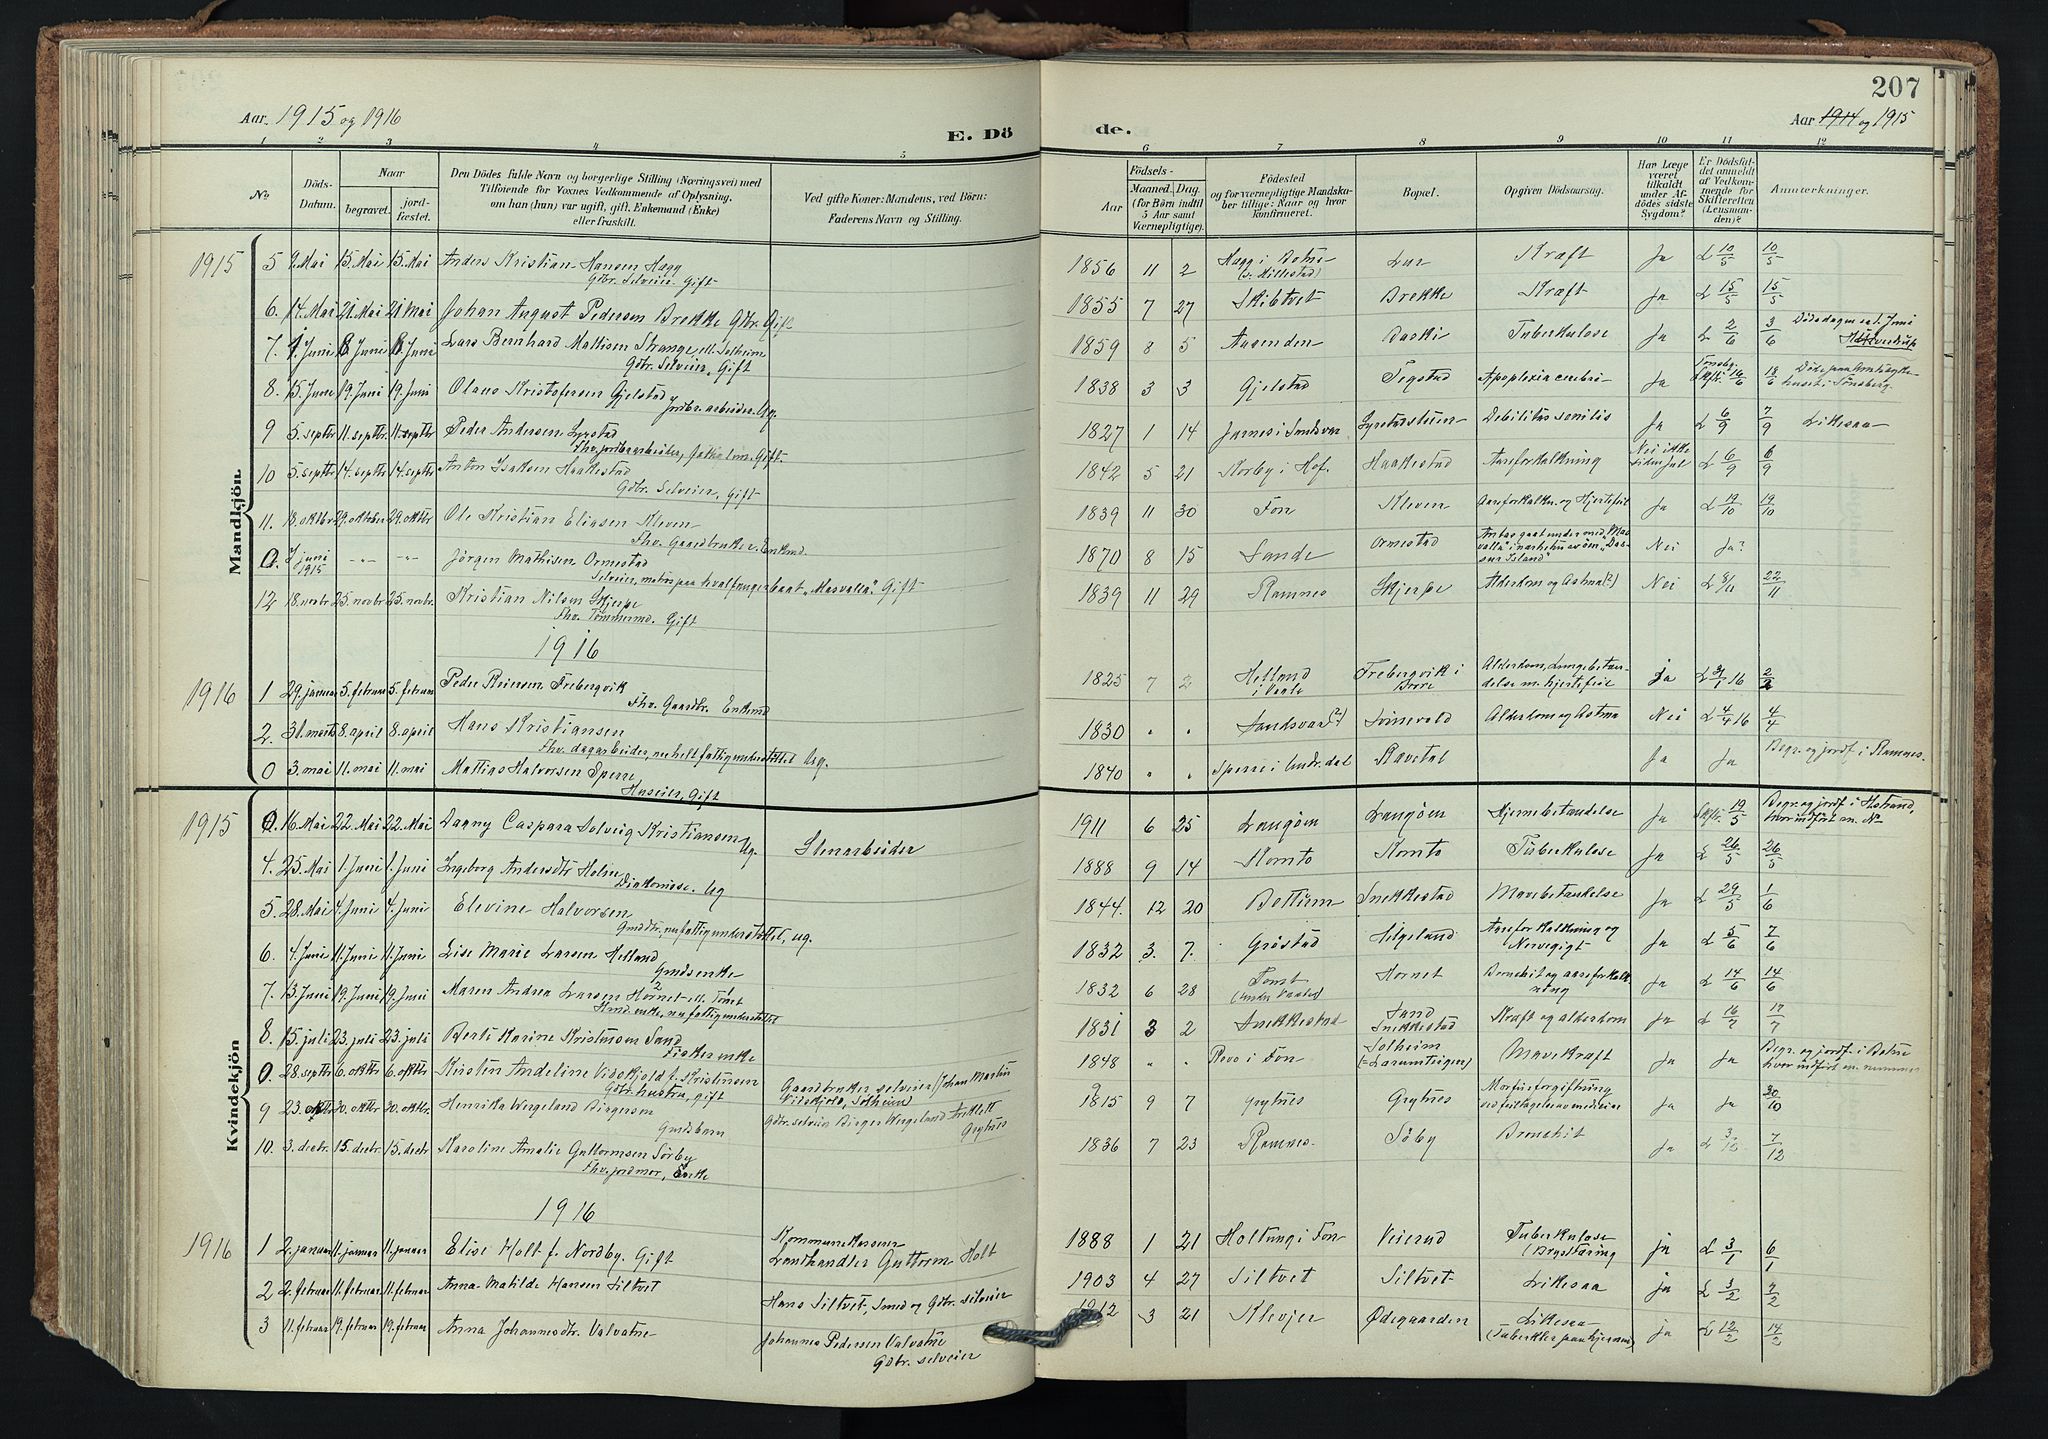 207
Aar. 1915 og 1916
E. Dö
de.
Aar 1914 og 1915
1 2 3 4 5 6 7 8 9 10 11 12
No.
Döds-Datum.
Naar
begravet.
jord-fæstet.
Den Dödes fulde Navn og borgerlige Stilling (Næringsvei) med
Tilföiende for Voxnes Vedkommende af Oplysning,
om han (hun) var ugift, gift, Enkemand (Enke)
eller fraskilt.
Ved gifte Koner: Mandens, ved Börn:
Faderens Navn og Stilling.
Födsels-
Aar
Maaned. Dag.
(for Börn indtil
5 Aar samt
Værnepligtige).
Födested
og for værnepligtige Mandska-
ber tillige: Naar og hvor
konfirmeret.
Bopæl.
Opgiven Dödsaarsag.
Har Læge
været
tilkaldt
under Af-
dödes sidste
Sygdom?
Er Dödsfal-
det anmeldt
af Vedkom-
mende for
Skifteretten
(Lensman-
den)?
Anmærkninger.
Mandkjön.
1915 5 9. Mai 15. Mai 15. Mai Anders Kristian Hansen Hagg 1856 11 2 Hagg i Botne Kræft Ja L 10/5 10/5
Gbr. Selveier Gift (v. Hillestad)
6. 14. Mai 21. Mai 21 Mai Johan August Pedersen Brekke Gbr. Gift 1855 7 27 Skibtvet Brekke Kræft Ja L 15/5 15/5
7. 1. Juni 8 Juni 8 Juni Lars Bernhard Mattisen Strange ell. Solheim 1859 8 5 Aasenden Tuberkulose Ja L 2/6 3/6
Gbr. Selveier, Gift
8. 15. Juni 19. Juni 19. Juni Olaus Kristofersen Gjelstad 1838 3 3 Gjelstad Tegstad Apoplexia cerebri Ja 18/6
Jordbr. arbeider. Ug. huset i Tönsberg.
9 5. septbr 11. septbr. 11. septbr Peder Andersen Lyrstad 1827 1 14 Debilitas senilis Ja L 6/9 7/9 Likesaa
Fhv. jordbr. arbeider, Gift.
10 5. septbr 14. septbr. 14. septbr Anton Isaksen Haakestad 1842 5 21 Norby i Hof. Haakestad Aareforkalkning Nei ikke L 6/9 6/9
Gdbr. Selveier, Gift
11. 18. oktbr 29. oktober 29. oktbr Ole Kristian Eliasen Kleven 1839 11 30 Fon Kleven Aareforkalkn. og Hjertefeil Ja L 19/10 19/10
Fhv. Gaardbruker. Enkmd.
0. 7 juni 1915 -"- -"- Jörgen Mathisen Ormestad 1870 8 15 Sande Ormestad Nei Ja?
Selveier, matros paa hvalfangerbaat "Masvalla". Gift
12 18. novbr. 25. novbr 25. novbr. Kristian Nilsen Skjerpe 1839 11 29 Ramnes Skjerpe Alderdom og Astma (?) Nei L 8/11 22/11
Fhv. Tömmermd. Gift
1916
1916 1 29. januar 5. februar 5. februar Peder Reiersen Freberqvik 1825 7 2 Helland Freberqvik i Alderdom, Lungebetæn- ja L 3/1 16 2/2
Fhv. Gaardbr. Enkmd i Vaale Borre delse m. hjertefeil
2. 31. marts 8. april 8. april Hans Kristiansen 1830 " " Sandsvær(?) Alderdom og Astma Nei L 4/4 16 4/4
Fhv. dagarbeider, nu helt fattigunderstöttet Ug.
0 3. mai 11. mai 11. mai Mattias Halvorsen Sperre 1840 " " Ja Ja Begr. og jordf. i Ramnes.
Huseier, Gift
Kvindekjön
1915 0. 16. Mai 22. Mai 22. Mai Dagny Caspara Solveig Kristiansen Ug. Stenarbeider 1911 6 25 Langöen Langöen Hjernebetændelse Ja Skfr. 19/5 Begr. og jordf. i Holmstrand, hvor indfört m. No
4. 25. Mai 1. Juni 1. Juni Ingeborg Andersdtr. Holm 1888 9 14 Komtö Komtö Tuberkulose Ja L 26/5 26/5
Diakonisse. Ug
5. 28. Mai 4. Juni 4. Juni Elevine Halvorsen 1844. 12 20 Snekkestad Ja L 29/5 1/6
Gmddtr., nu fattigunderstöttet, ug.
6 4. Juni 11. Juni 11. Juni Lise Marie Larsen Helland 1832 3. 7. Gröstad Helgeland Aareforkalkning og Nervegigt Ja L 5/6 7/6
Gmdsenke
7. 13. Juni 19. Juni 19. Juni Maren Andrea Larsen Hornet ell. Tömt 1832 6 28 Hornet Ja L 14/6 14/6
Hmd. enke, nu fattigunderstöttet
8. 15. juli 23. juli 23. juli Berte Karine Kristensen Sand 1831 3 2 Snekkestad Sand Snekkestad Kræft og alderdom Ja L 16/7 17/7
Fiskerenke
0. 28. septbr 6. oktbr 6. oktbr Kirsten Andeline Vidskjold f. Kristensen Gaardbruker selveier (Johan Martin 1848 " " Revo i Fon Solheim Mavekræft Ja Ja Begr. og jordf. i Botne
Gdbr. hustru, gift Vidskjold, Solheim) hvor indfört m. nummer
9 23. oktbr 30. oktbr 30. oktbr Henrika Wergeland Birgersen Gdbr. selveier Birger Wergeland 1815 9 7 Grytnes Grytnes Morfinforgiftning Ja Ja 30/10
Gmdsbarn Grytnes
10. 3. decbr. 15. decbr. 15. decbr Karoline Amalie Guttormsen Sörby 1836 7 23 Ramnes Söby Bronckit Ja L 3/12 7/12
Fhv. jordmor, Enke
1916
1916 1 2. januar 11. januar 11. januar Elise Holt f. Nordby. Gift Kommunekasserer 1888 1 21 Holtung i Fon Tuberkulose ja L 3/1 6/1
Landhandler Guttorm Holt (Brysttæring
2 2. februar 11. februar 11. februar Anna Matilde Hansen Siltvet Hans Siltvet, Smed og Gdbr. selveier 1903 4 27 Siltvet Siltvet Likesaa ja L 3/2 7/2
3 11. februar 19. februar 19. februar Anna Johannesdtr. Valvatne Johannes Pedersen Valvatne 1912 3 21 Klevjer Ødegaarden Likesaa ja L 12/2 14/2
Gdbr. selveier (Tuberkler paa hjernen)